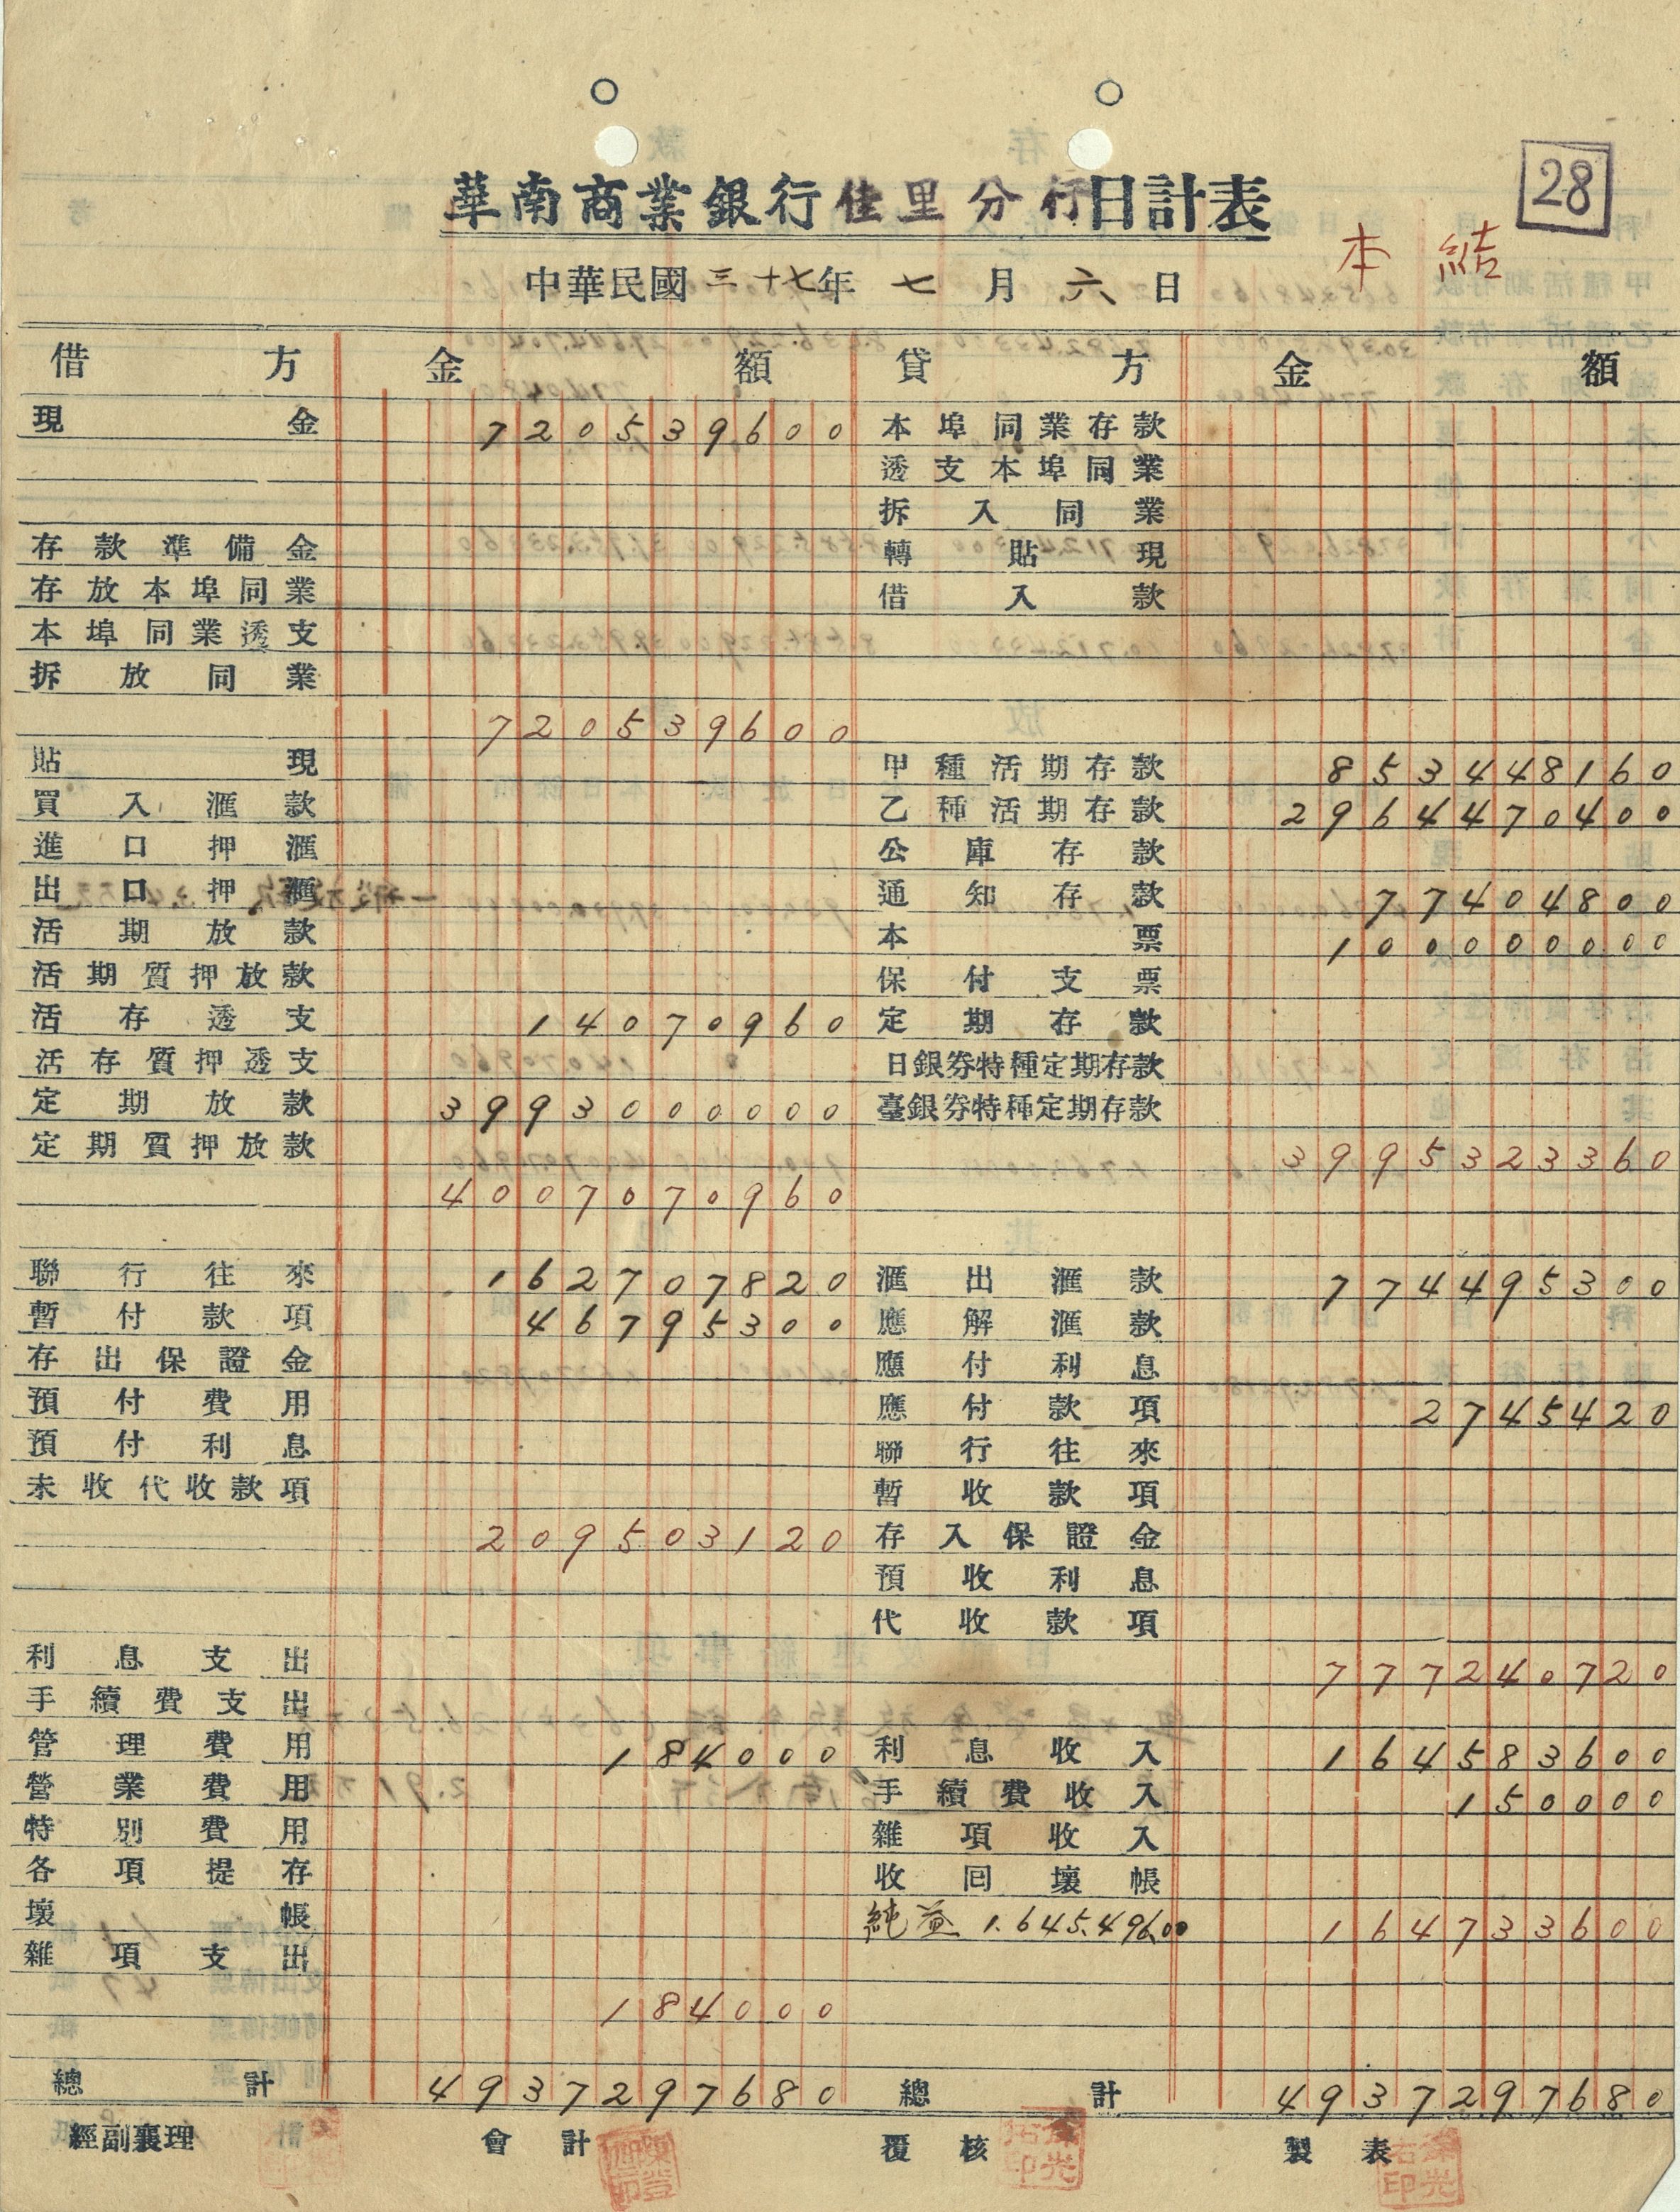 28
華南商業銀行佳里分行日計表
本 結
中華民國三十七年 七 月 六 日
借方 金額 貸方 金額
現金 720539600 本埠同業存款
透支本埠同業
拆入同業
存款準備金 轉貼現
存放本埠同業 借入款
本埠同業透支
拆放同業
720539600
貼現 甲種活期存款 853448160
買入滙款 乙種活期存款 2964470400
進口押滙 公庫存款
出口押滙 通知存款 77404800
活期放款 本票 100000000
活期質押放款 保付支票
活存透支 14070960 定期存款
活存質押透支 日銀券特種定期存款
定期放款 3993000000 臺銀券特種定期存款
定期質押放款 3995323360
4007070960
聯行往來 162707820 滙出滙款 774495300
暫付款項 46795300 應解滙款
存出保證金 應付利息
預付費用 應付款項 2745420
預付利息 聯行往來
未收代收款項 暫收款項
209503120 存入保證金
預收利息
代收款項
利息支出 777240720
手續費支出
管理費用 184000 利息收入 164583600
營業費用 手續費收入 150000
特別費用 雜項收入
各項提存 收回壞帳
壞帳 純益 1.645.496.00 164733600
雜項支出
184000
總計 4937297680 總計 4937297680
經副襄理 會計 覆核 製表